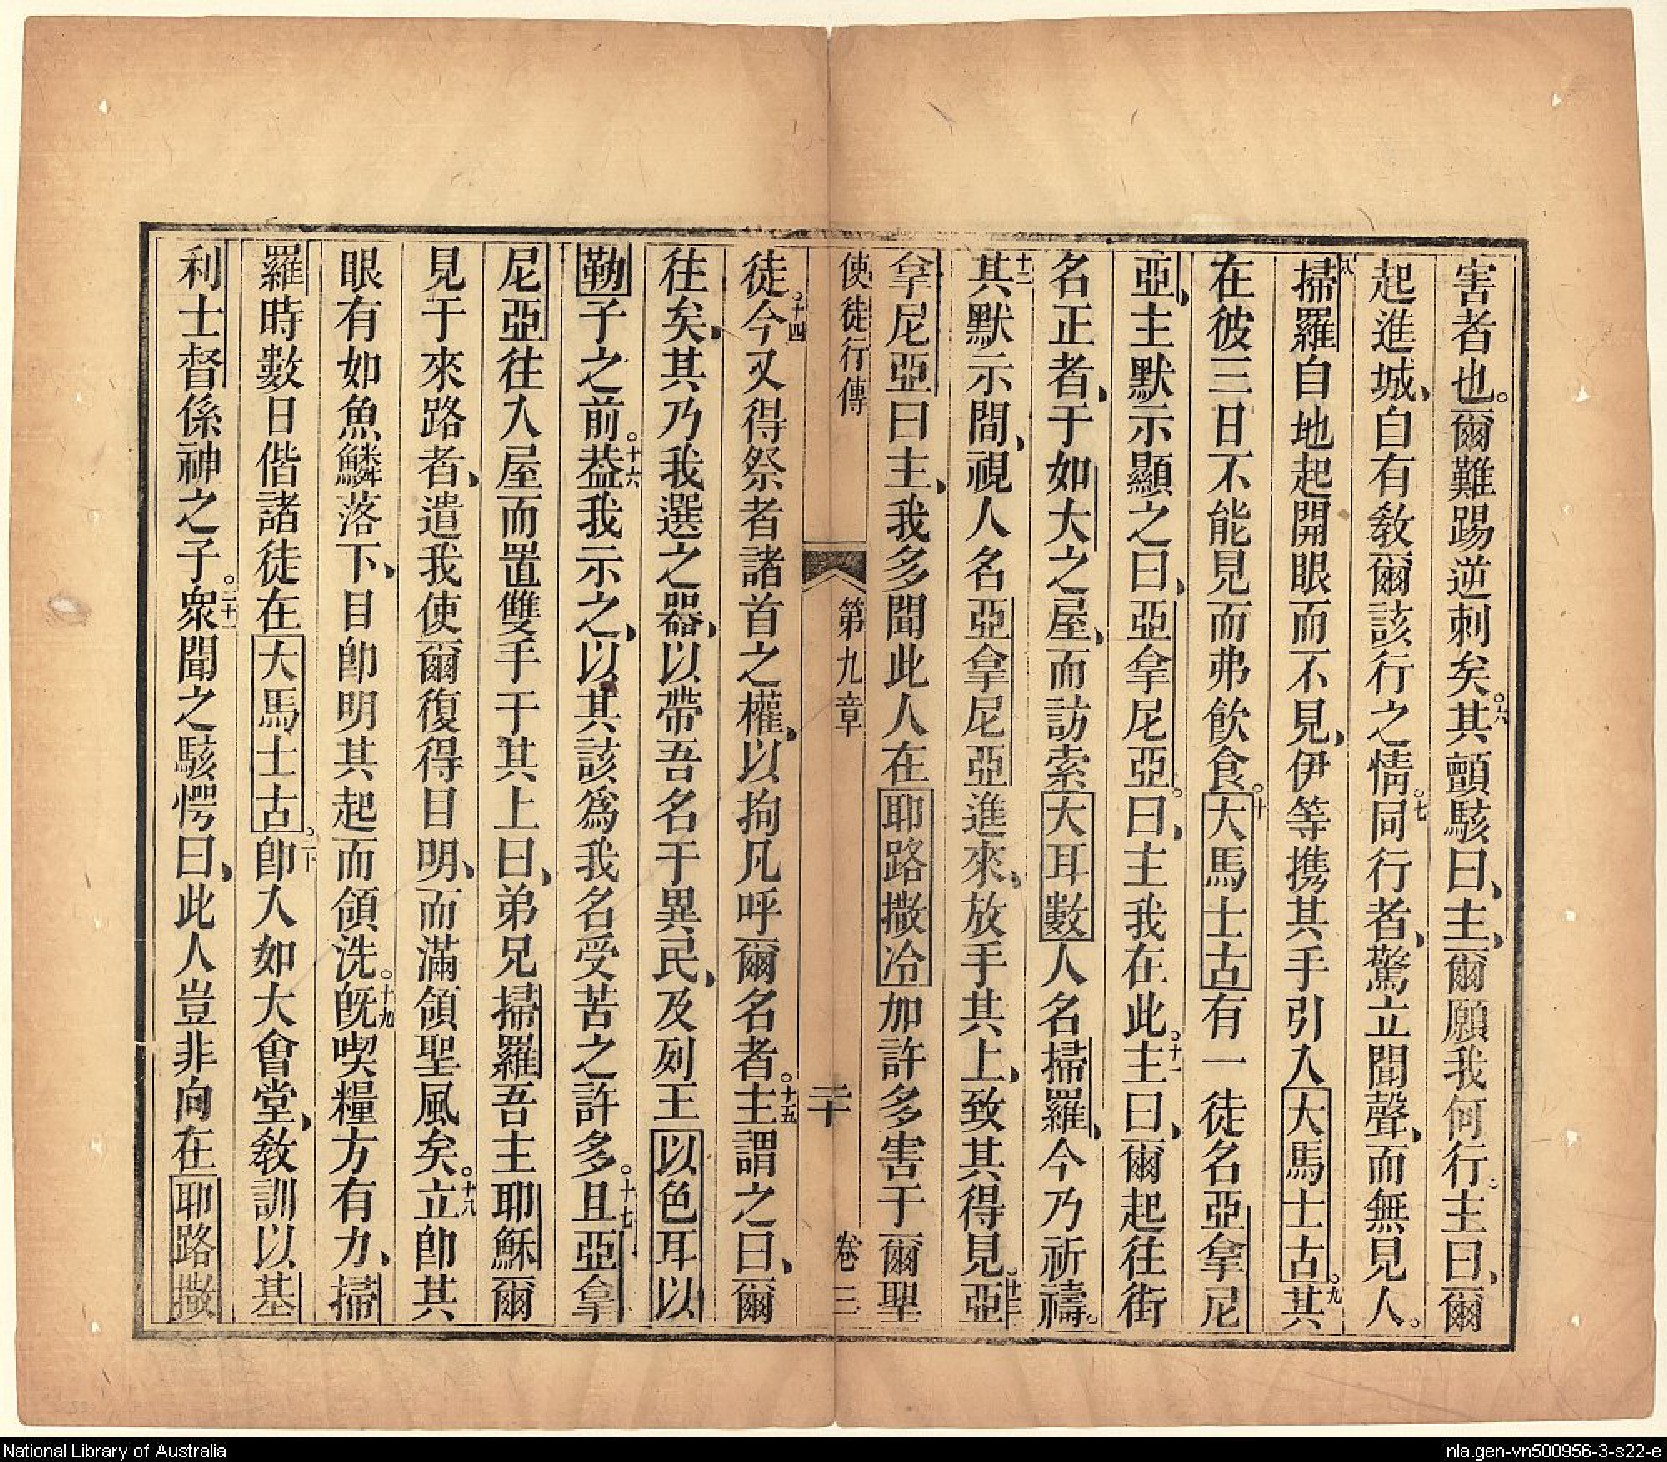 害者也。爾難踢逆刺矣。六其顫駭曰、主、爾願我何行。主曰、爾
起進城、自有教爾該行之情。七同行者、驚立聞聲、而無見人。
八掃羅自地起開眼而不見、伊等攜其手引入大馬士古。九其
在彼三日不能見而弗飲食。十大馬士古有一徒名亞拿尼
亞、主默示顯之曰、亞拿尼亞。曰、主我在此。十一主曰、爾起往街
名正者、于如大之屋、而訪索大耳數人名掃羅、今乃祈禱。
十二其默示間、視人名亞拿尼亞進來、放手其上、致其得見。十三亞
拿尼亞曰主、我多聞此人在耶路撒冷加許多害于爾聖
使徒行傳 第九章 二十 卷三
徒。十四今又得祭者諸首之權、以拘凡呼爾名者。十五主謂之曰、爾
往矣、其乃我選之器、以帶吾名于異民、及列王以色耳以
勒子之前。十六葢我示之、以其該為我名受苦之許多。十七且亞拿
尼亞往入屋而置雙手于其上曰、弟兄掃羅吾主耶穌爾
見于來路者、遣我使爾復得目明、而滿領聖風矣。十八立即其
眼有如魚鱗落下、目即明其起而領洗。十九既喫糧方有力、掃
羅時數日偕諸徒在大馬士古。二十即入如大會堂、敎訓以基
利士督係神之子。二十一衆聞之駭愕曰、此人豈非向在耶路撒
National Library of Australia
nla.gen-vn500956-3-s22-e